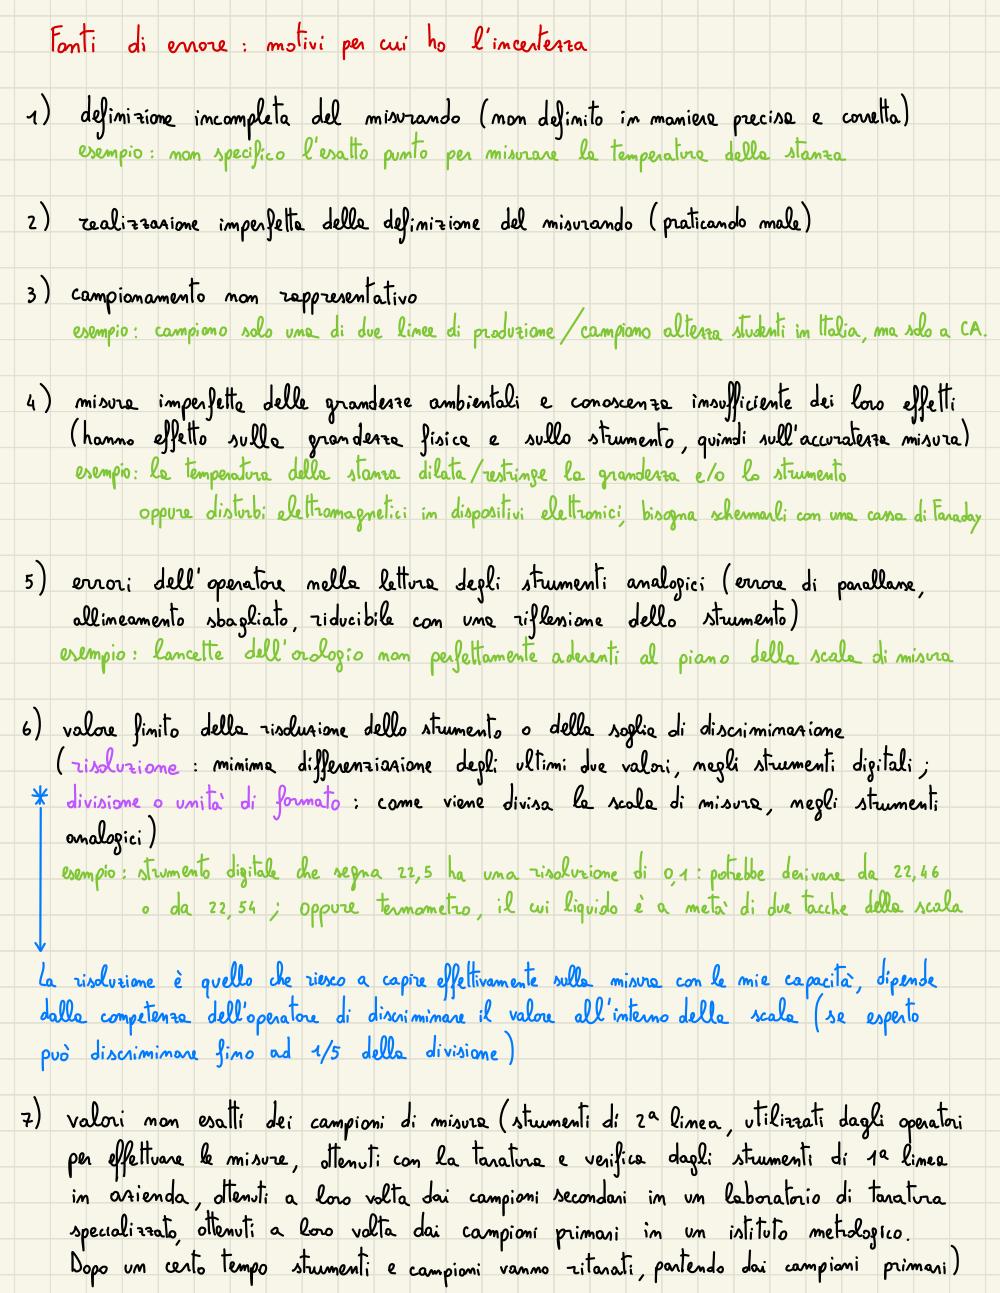 Fonti di errore : motivi per cui ho l'incertezza
1) definizione incompleta del misurando (non definito in maniera precisa e corretta)
esempio : non specifico l'esatto punto per misurare la temperatura della stanza
2) realizzazione imperfetta della definizione del misurando (praticando male)
3) campionamento non rappresentativo
esempio : campiono solo una di due linee di produzione / campiono altezza studenti in Italia, ma solo a CA.
4) misura imperfetta delle grandezze ambientali e conoscenza insufficiente dei loro effetti
(hanno effetto sulla grandezza fisica e sullo strumento, quindi sull'accuratezza misura)
esempio : la temperatura della stanza dilata/restringe la grandezza e/o lo strumento
oppure disturbi elettromagnetici in dispositivi elettronici, bisogna schermarli con una cassa di Faraday
5) errori dell'operatore nella lettura degli strumenti analogici (errore di parallasse,
allineamento sbagliato, riducibile con una riflessione dello strumento)
esempio : lancette dell'orologio non perfettamente aderenti al piano della scala di misura
6) valore finito della risoluzione dello strumento o della soglia di discriminazione
(risoluzione : minima differenziazione degli ultimi due valori, negli strumenti digitali ;
* divisione o unità di formato : come viene divisa la scala di misura, negli strumenti
analogici)
esempio : strumento digitale che segna 22,5 ha una risoluzione di 0,1 : potrebbe derivare da 22,46
o da 22,54 ; oppure termometro, il cui liquido è a metà di due tacche della scala
La risoluzione è quello che riesco a capire effettivamente sulla misura con le mie capacità, dipende
dalla competenza dell'operatore di discriminare il valore all'interno della scala (se esperto
può discriminare fino ad 1/5 della divisione)
7) valori non esatti dei campioni di misura (strumenti di 2ª linea, utilizzati dagli operatori
per effettuare le misure, ottenuti con la taratura e verifica dagli strumenti di 1ª linea
in azienda, ottenuti a loro volta dai campioni secondari in un laboratorio di taratura
specializzato, ottenuti a loro volta dai campioni primari in un istituto metrologico.
Dopo un certo tempo strumenti e campioni vanno ritarati, partendo dai campioni primari)